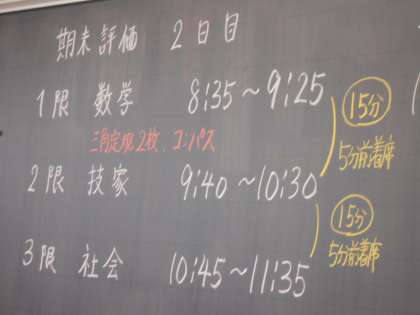 期末評価 2日目
1限 数学 8:35～9:25
15分
三角定規2枚、コンパス
5分前着席
2限 技家 9:40～10:30
15分
5分前着席
3限 社会 10:45～11:35